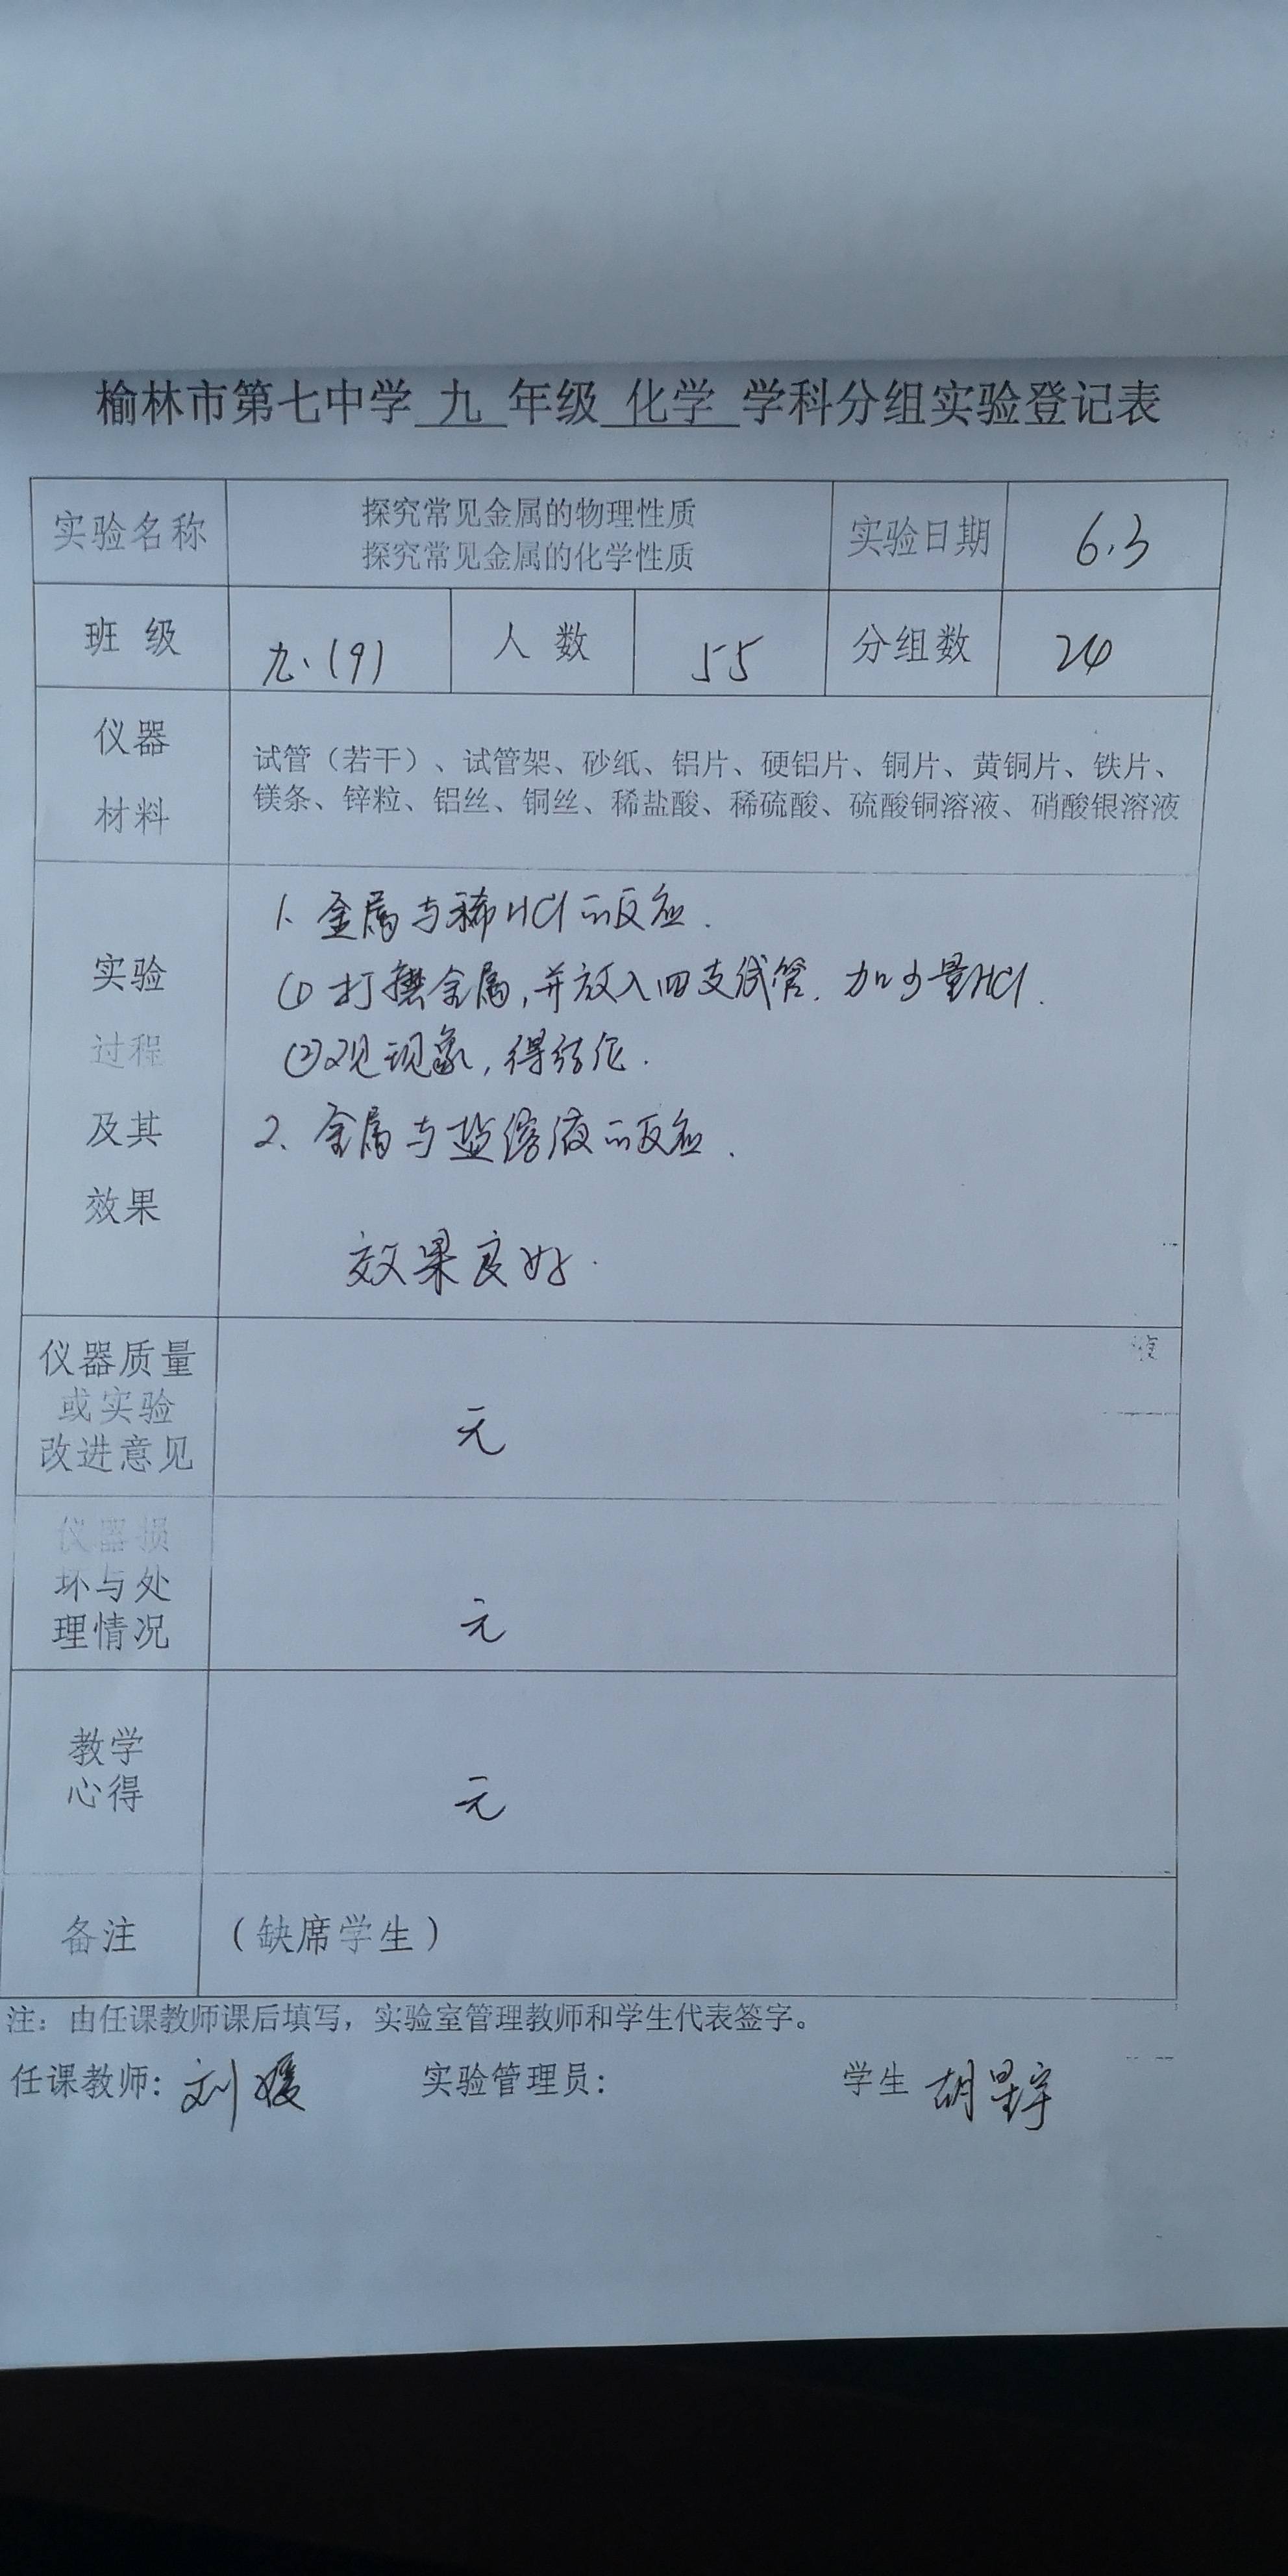 榆林市第七中学 九 年级 化学 学科分组实验登记表
实验名称 探究常见金属的物理性质
探究常见金属的化学性质 实验日期 6.3
班 级 九.(9) 人 数 55 分组数 24
仪器
材料
试管（若干）、试管架、砂纸、铝片、硬铝片、铜片、黄铜片、铁片、
镁条、锌粒、铝丝、铜丝、稀盐酸、稀硫酸、硫酸铜溶液、硝酸银溶液
实验
过程
及其
效果
1. 金属与稀HCl的反应.
① 打磨金属,并放入四支试管. 加少量HCl.
②观现象,得结论.
2. 金属与盐溶液的反应.
效果良好.
仪器质量
或实验
改进意见
无
仪器损
坏与处
理情况
无
教学
心得
无
备注 （缺席学生）
注：由任课教师课后填写，实验室管理教师和学生代表签字。
任课教师: 刘媛 实验管理员: 学生 胡星宇